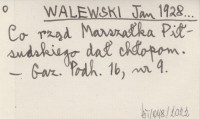 WALEWSKI Jan 1928...
Co rząd Marszałka Pił-
sudskiego dał chłopom.
– Gaz. Podh. 16, nr 9.